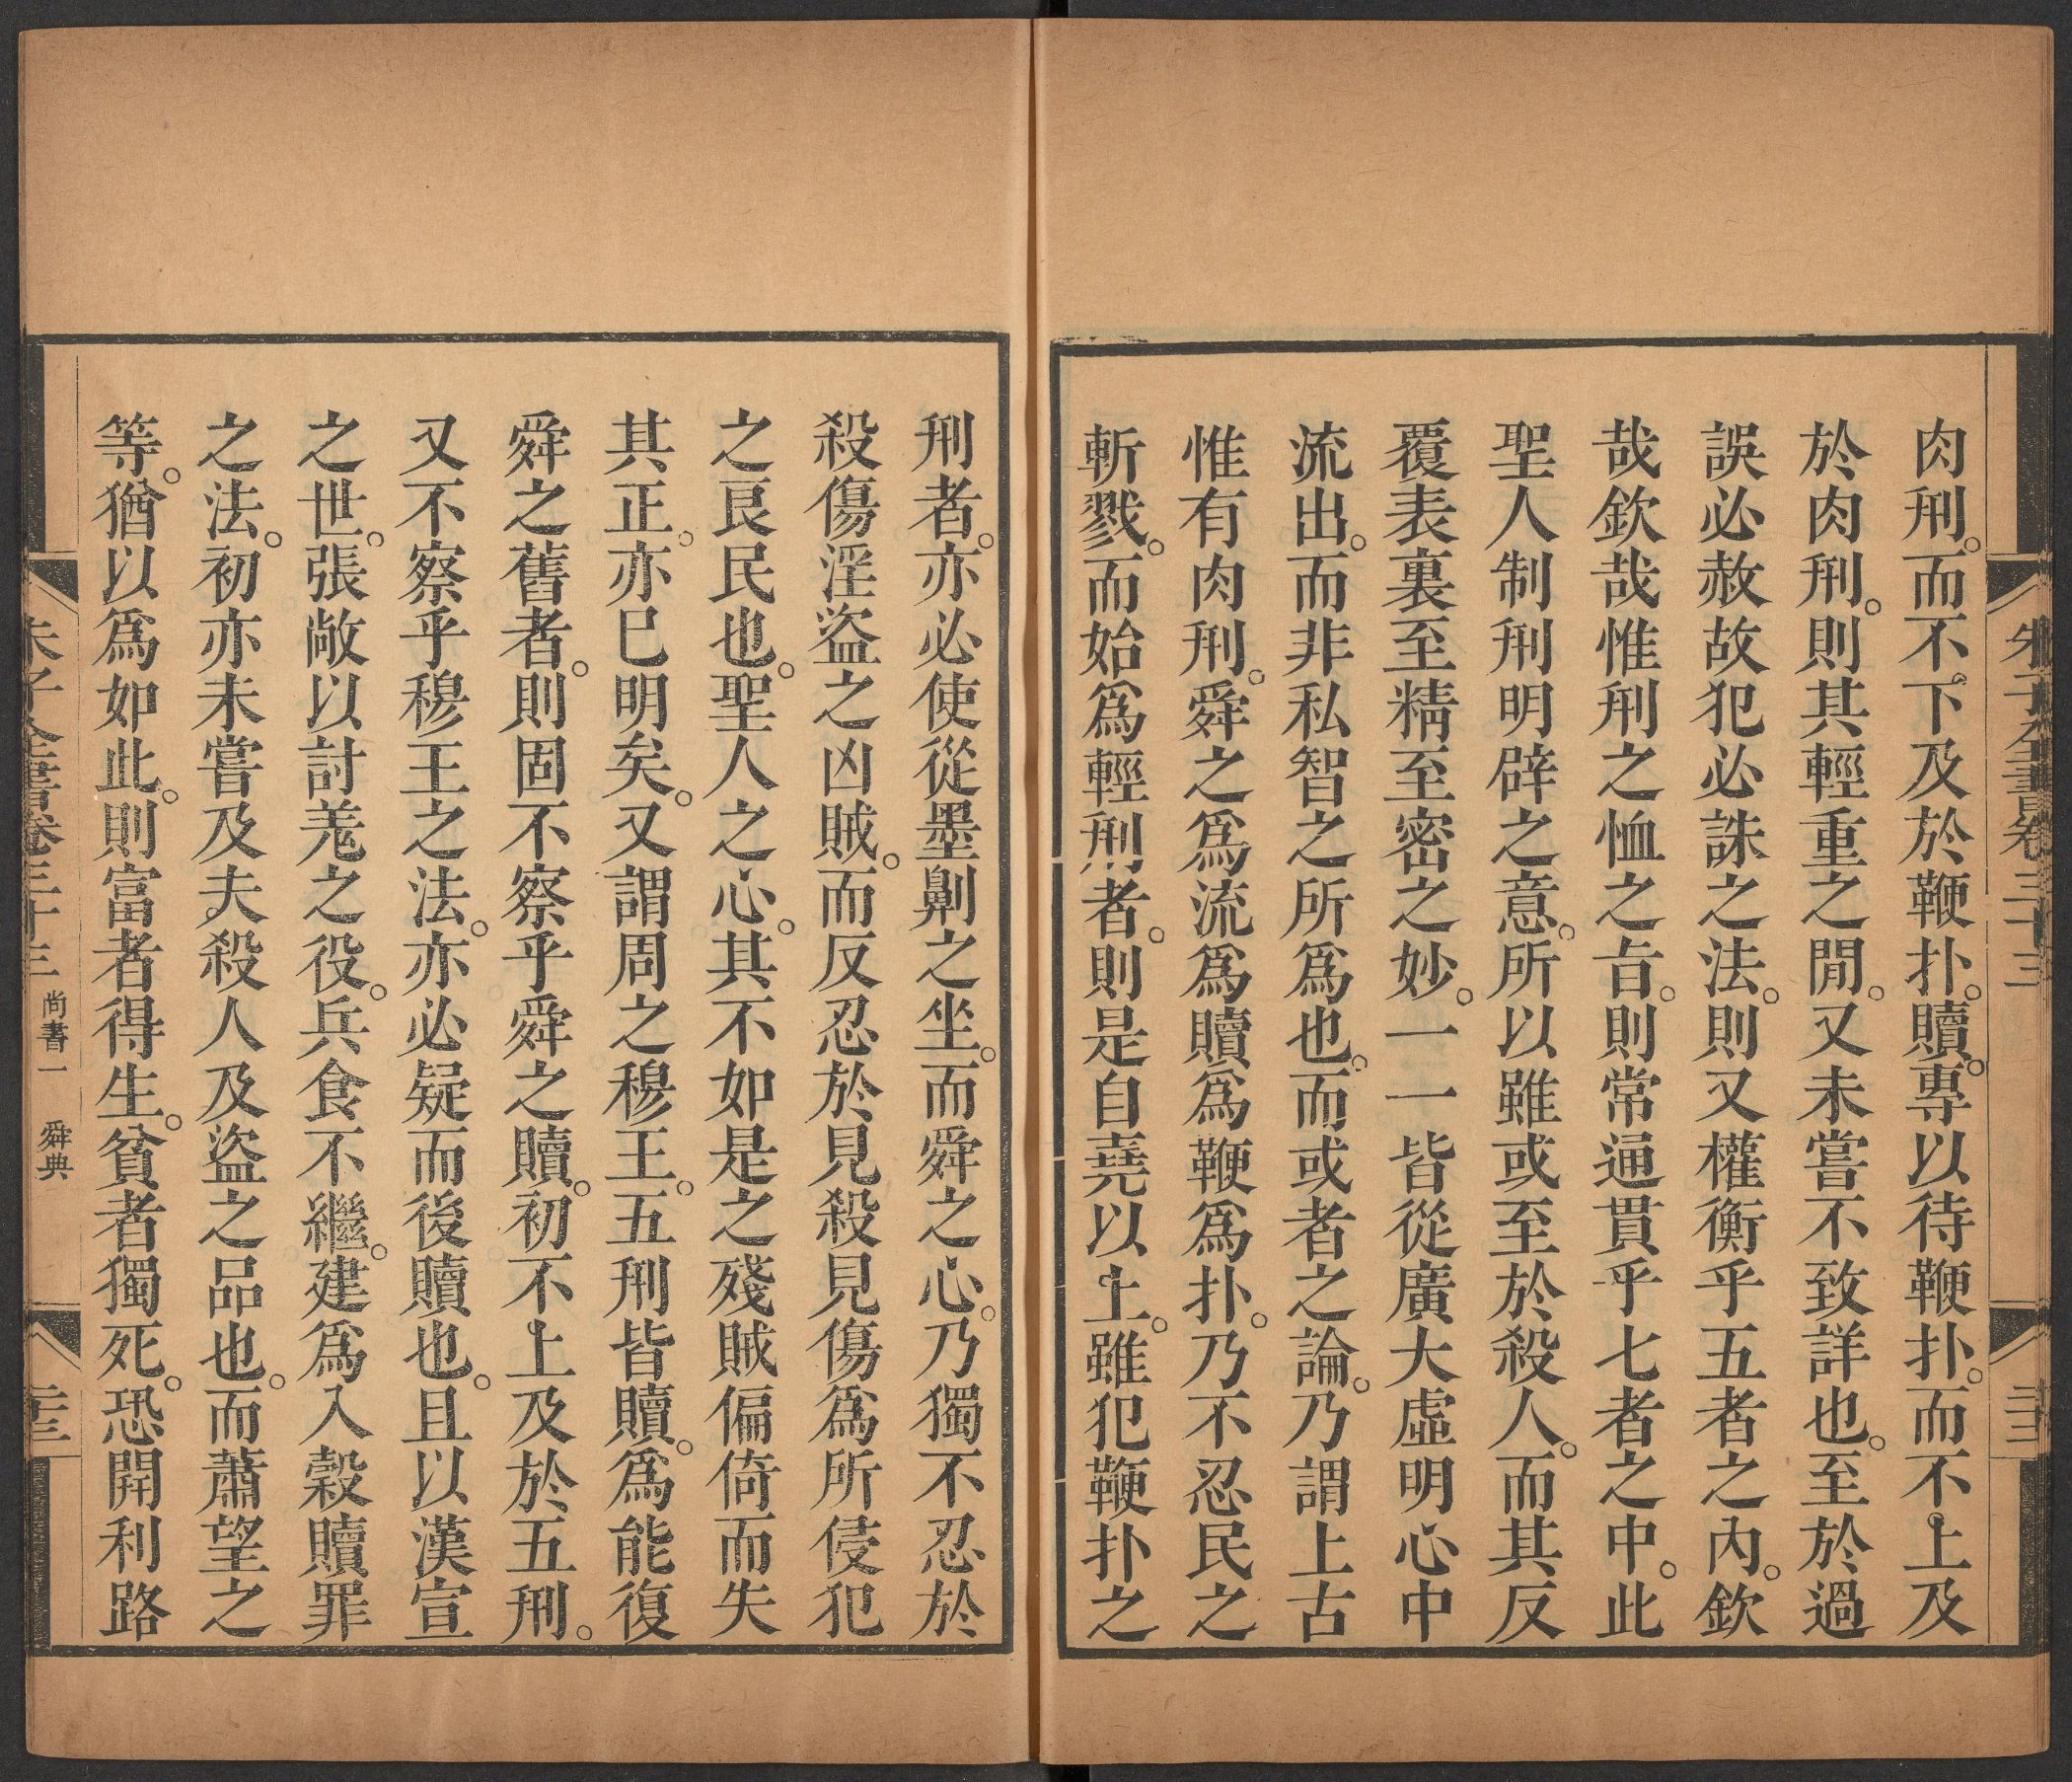 朱子全書卷三十三
二十二
肉刑。而不下及於鞭扑。贖。專以待鞭扑。而不上及
於肉刑。則其輕重之閒。又未嘗不致詳也。至於過
誤必赦故犯必誅之法。則又權衡乎五者之內。欽
哉欽哉惟刑之恤之㫖。則常通貫乎七者之中。此
聖人制刑明辟之意。所以雖或至於殺人。而其反
覆表裏至精至密之妙。一一皆從廣大虛明心中
流出。而非私智之所爲也。而或者之論。乃謂上古
惟有肉刑。舜之爲流爲贖爲鞭爲扑。乃不忍民之
斬戮。而始爲輕刑者。則是自堯以上。雖犯鞭扑之
刑者。亦必使從墨劓之坐。而舜之心。乃獨不忍於
殺傷淫盜之凶賊。而反忍於見殺見傷爲所侵犯
之良民也。聖人之心。其不如是之殘賊偏倚而失
其正。亦巳明矣。又謂周之穆王。五刑皆贖。爲能復
舜之舊者。則固不察乎舜之贖。初不上及於五刑。
又不察乎穆王之法。亦必疑而後贖也。且以漢宣
之世。張敞以討羗之役。兵食不繼。建爲入穀贖罪
之法。初亦未嘗及夫殺人及盜之品也。而蕭望之
等。猶以爲如此。則富者得生。貧者獨死。恐開利路
朱子全書卷三十三 尚書一 舜典
二十三